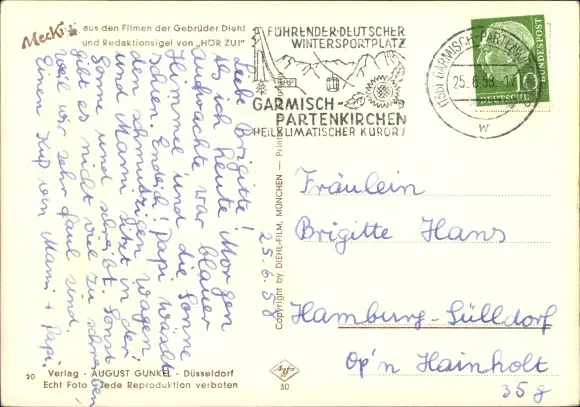 Mecki aus den Filmen der Gebrüder Diehl
und Redaktionsigel von „HÖR ZU!"
FÜHRENDER DEUTSCHER
WINTERSPORTPLATZ
GARMISCH-
PARTENKIRCHEN
HEILKLIMATISCHER KURORT
GARMISCH-PARTENKIRCHEN
25.6.58
w
10
DEUTSCHE
BUNDESPOST
25.6.58
Liebe Brigitte!
Als ich heute Morgen
aufwachte war blauer
Himmel und die Sonne
schien. Endlich! Papi wäscht
den schmutzigen Wagen
und Mami sitzt in der
Sonne und schreibt. Sonst
gibt es nicht viel zu schreiben,
weil wir sehr faul sind.
Einen Kuß von Mami + Papi.
Copyright by DIEHL-FILM, MÜNCHEN — Printed
Fräulein
Brigitte Hans
Hamburg-Sülldorf
Op'n Hainholt
35 g
20 Verlag - AUGUST GUNKEL - Düsseldorf
Echt Foto - Jede Reproduktion verboten
Agfa
50